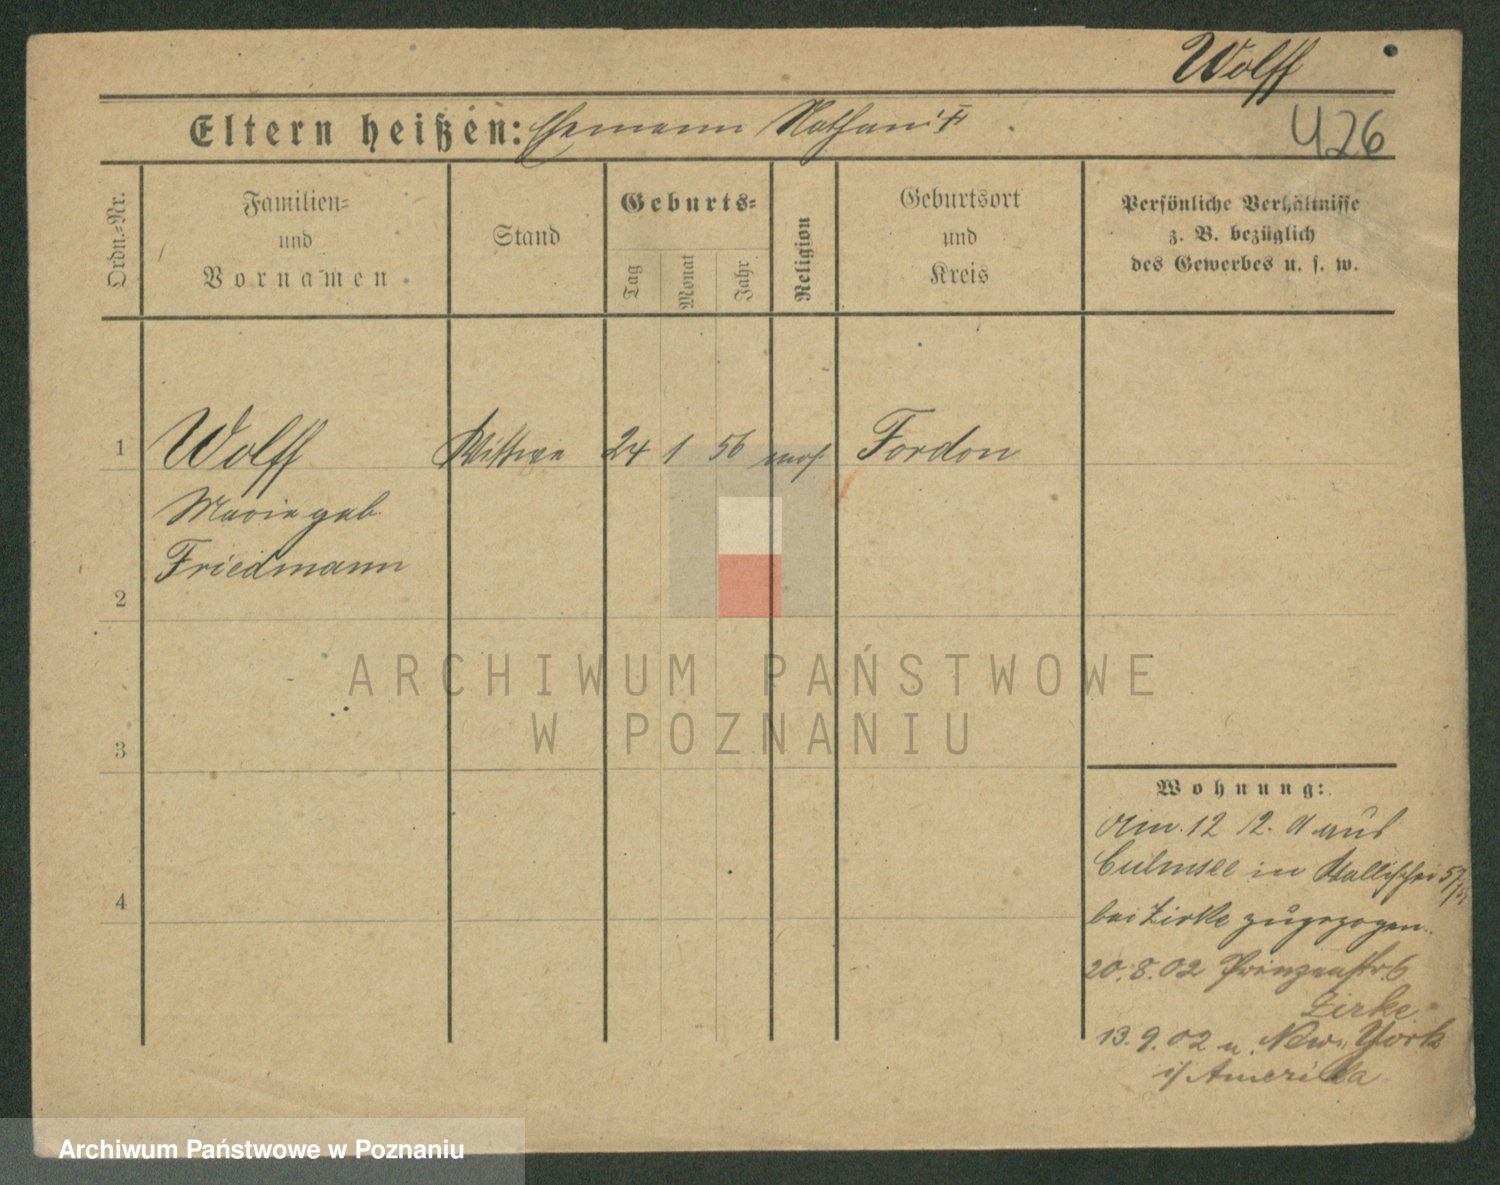 Wolff
Eltern heißen: Ehemann Nathan
426
Ordn.=Nr.
Familien=
und
Vornamen
Stand
Geburts=
Tag
Monat
Jahr
Religion
Geburtsort
und
Kreis
Persönliche Verhältnisse
z. B. bezüglich
des Gewerbes u. s. w.
1 Wolff Wittwe 24 1 56 mos. Fordon
Marie geb.
Friedmann
2
3
4
ARCHIWUM PAŃSTWOWE
W POZNANIU
Wohnung:
Am 12 12. 01 aus
Culmsee in Wallischei
bei Zirke zugezogen.
20.8.02 Prinzenstr. 6
Zirke
13.9.02 n. New-York
i/ Amerika
Archiwum Państwowe w Poznaniu